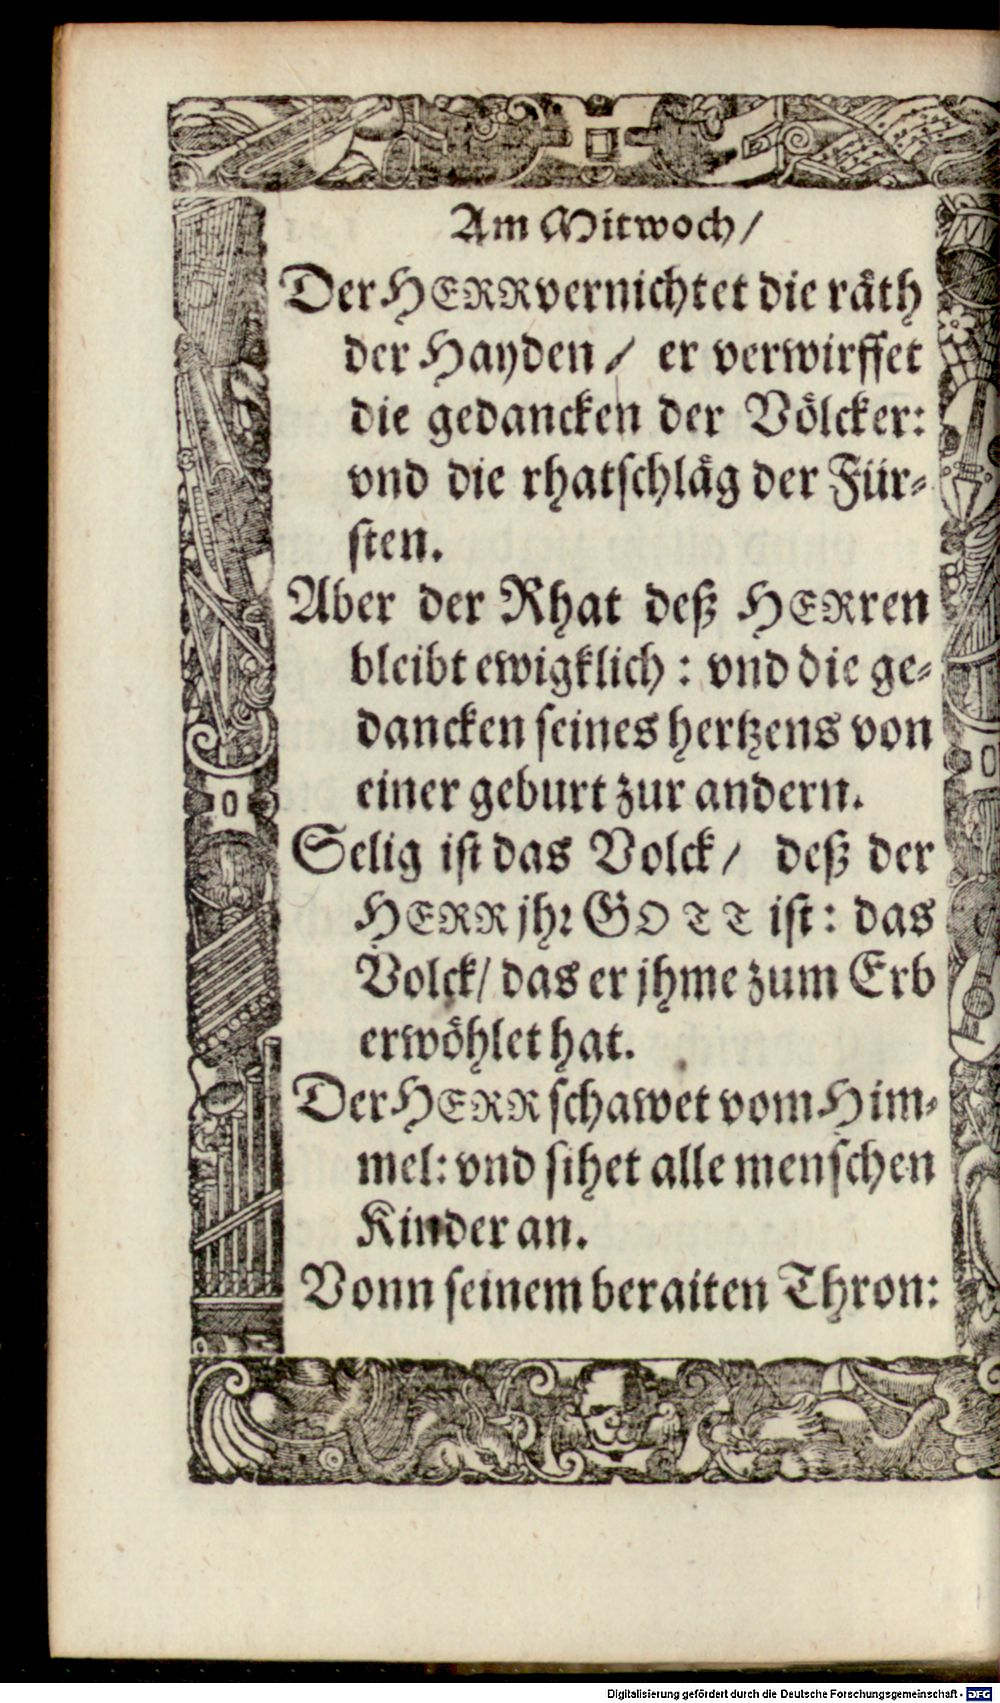 Am Mitwoch/
Der HERR vernichtet die räth
der Hayden/ er verwirffet
die gedancken der Völcker:
vnd die rhatschläg der Für-
sten.
Aber der Rhat deß HERren
bleibt ewigklich: vnd die ge-
dancken seines hertzens von
einer geburt zur andern.
Selig ist das Volck/ deß der
HERR jhr GOTT ist: das
Volck/ das er jhme zum Erb
erwöhlet hat.
Der HERR schawet vom Him-
mel: vnd sihet alle menschen
Kinder an.
Vonn seinem beraiten Thron:
Digitalisierung gefördert durch die Deutsche Forschungsgemeinschaft - DFG